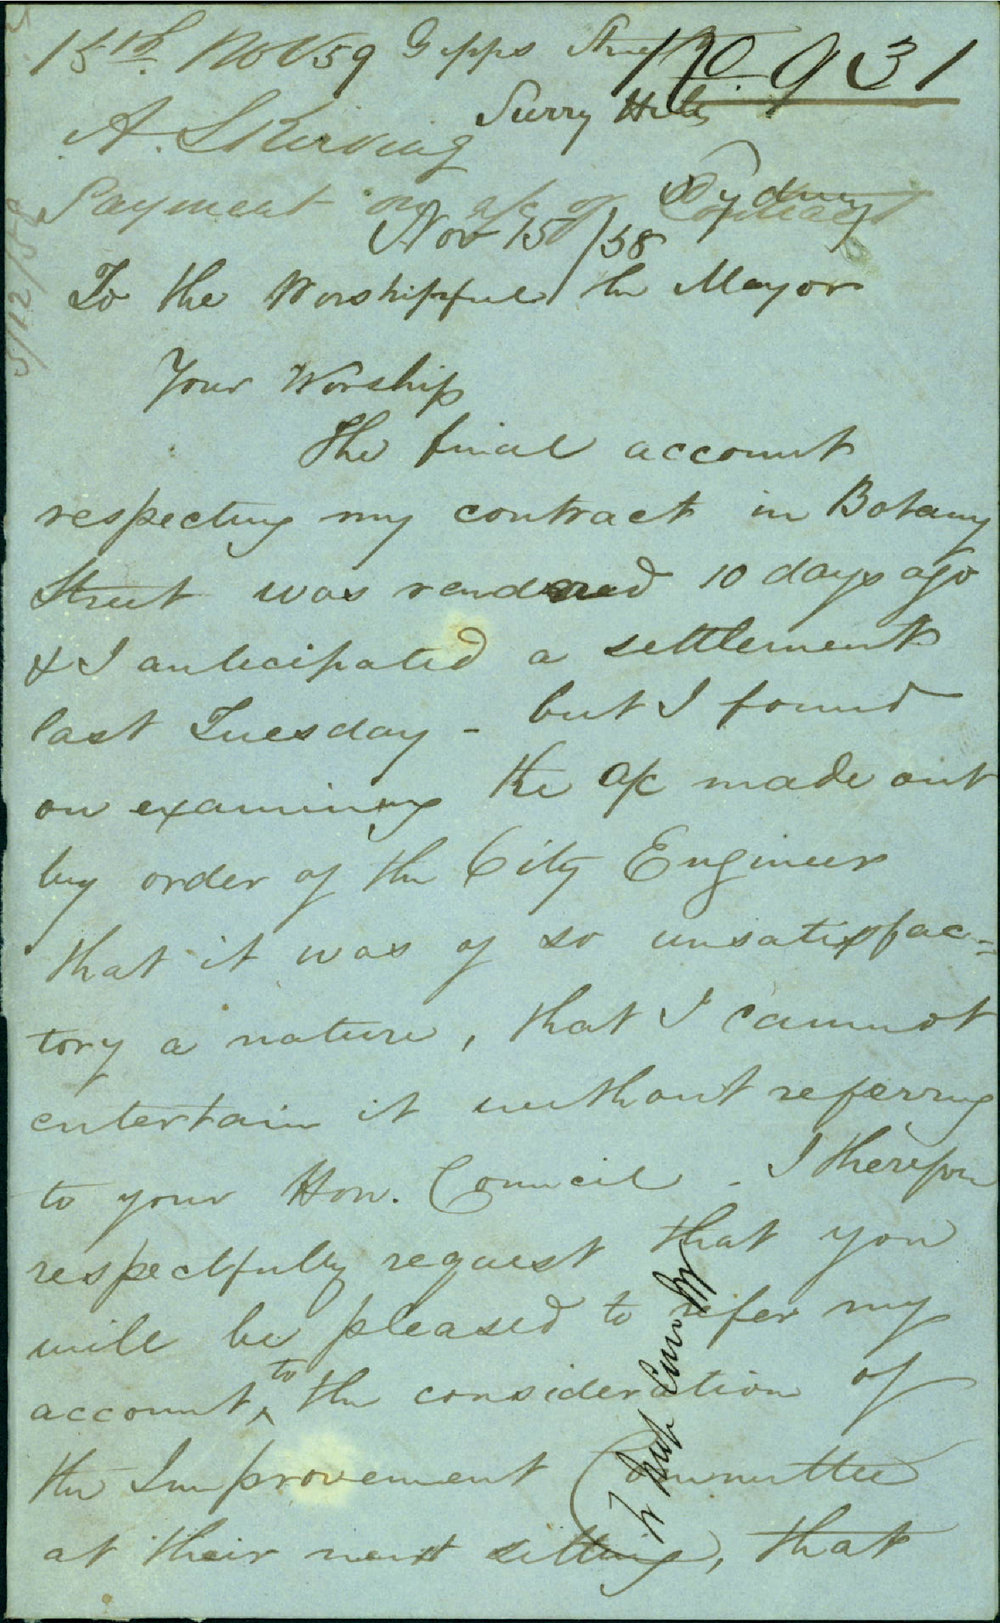 15th. Nov 59 Gipps Street No. 931
Surry Hills
A. Skirving
Payment on a/c of Contract
Sydney
Nov 15/58
To the Worshipful the Mayor
Your Worship
The final account
respecting my contract in Botany
Street was rendered 10 days ago
& I anticipated a settlement
last Tuesday - but I found
on examining the a/c made out
by order of the City Engineer
that it was of so unsatisfac=
tory a nature, that I cannot
entertain it without referring
to your Hon. Council. I therefore
respectfully request that you
will be pleased to refer my
account, to the consideration of
the Improvement Committee
at their next sitting, that